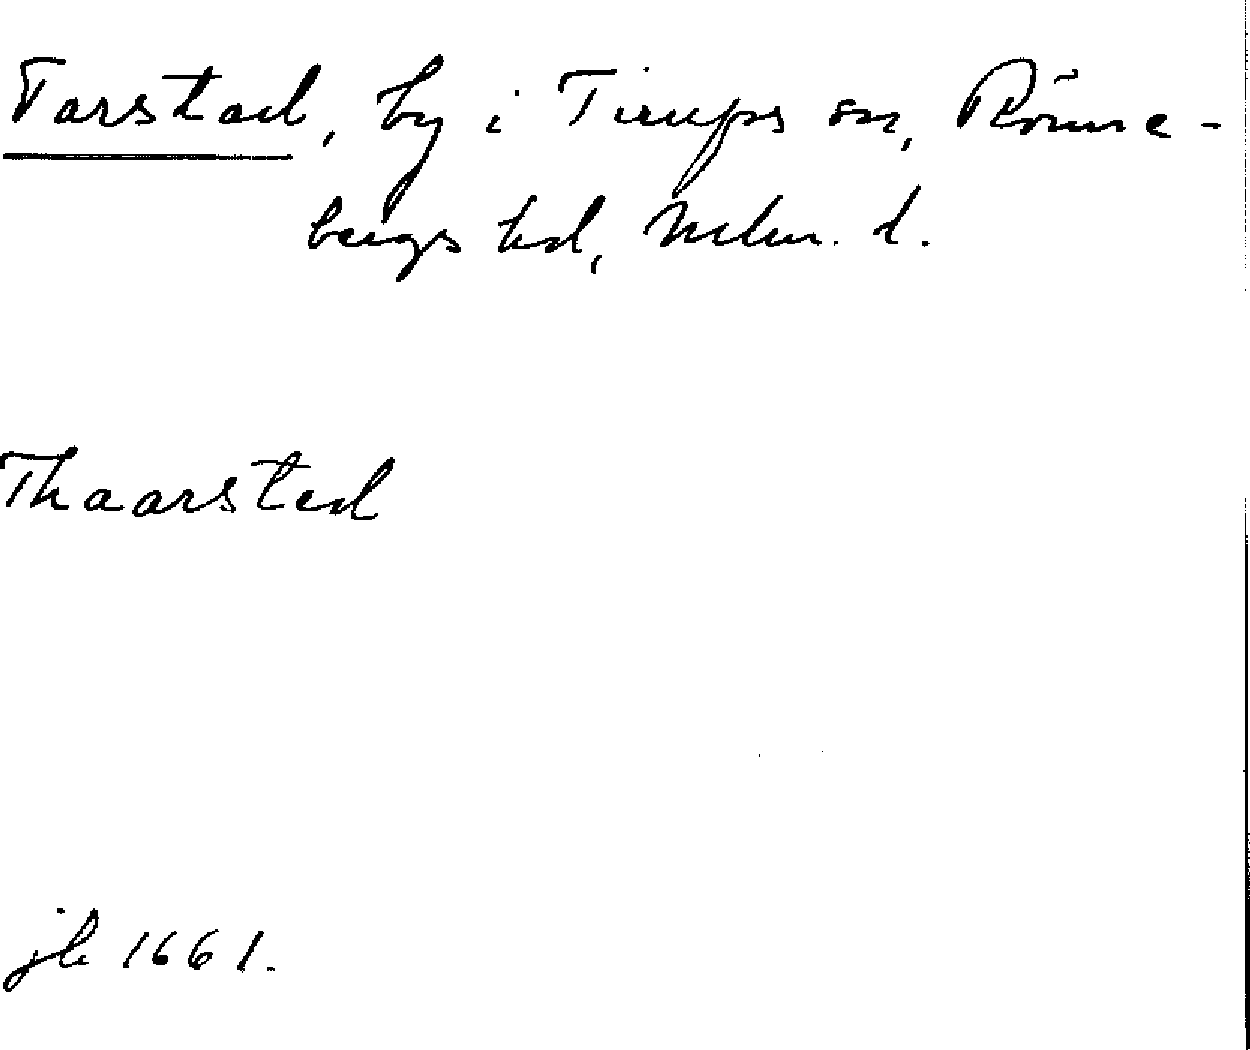 Tarstad, by i Tirups sn, Rönne-
bergs hd, Mlm. l.
Thaarsted
jb 1661.